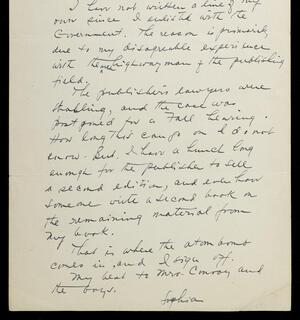 I have not written a line of my
own since I enlisted with the
Government. The reason is primarily
due to my disagreeable experience
with the highwayman of the publishing
field.
The publishers lawyers were
stabbling, and the case was
postponed for a Fall hearing.
How long this camps on I do not
know. But I have a hunch long
enough for the publisher to sell
a second edition, and even have
someone write a second book on
the remaining material from
my book.
That is where the atom bomb
comes in and I sign off.
My best to Mrs. Conroy and
the boys.